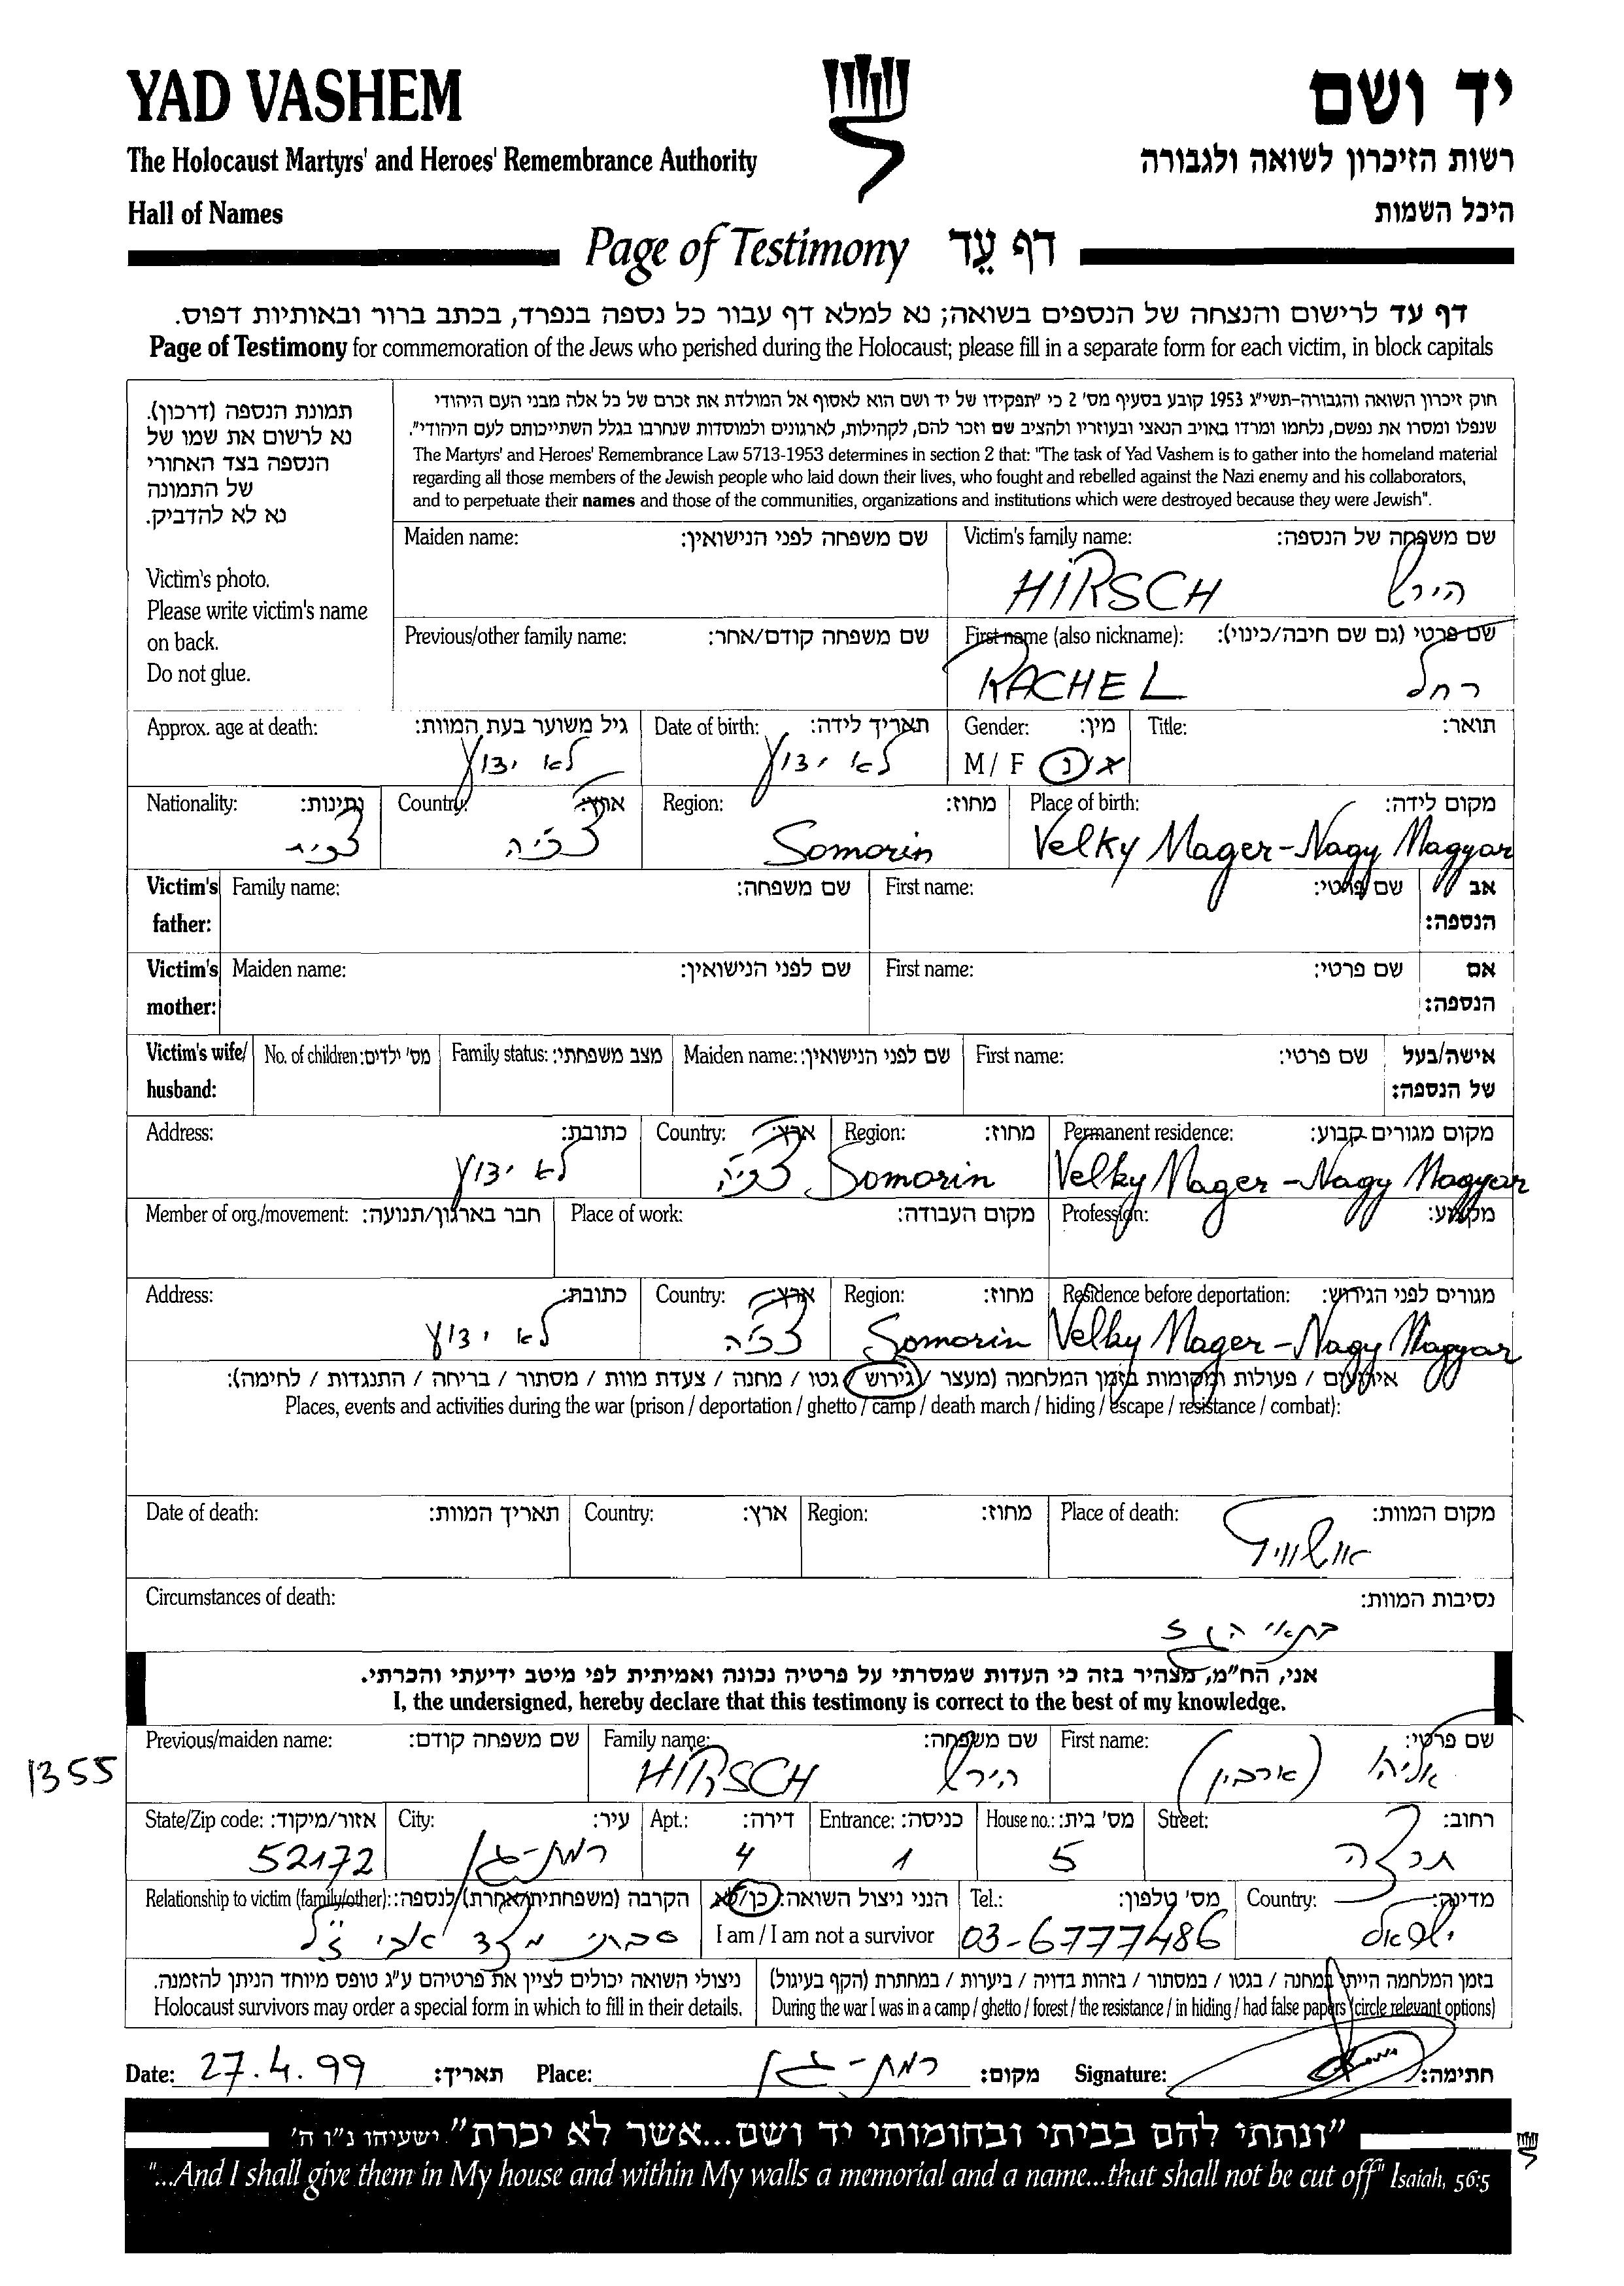 YAD VASHEM
יד ושם
The Holocaust Martyrs' and Heroes' Remembrance Authority
רשות הזיכרון לשואה ולגבורה
Hall of Names
היכל השמות
Page of Testimony דף עֵד
דף עד לרישום והנצחה של הנספים בשואה; נא למלא דף עבור כל נספה בנפרד, בכתב ברור ובאותיות דפוס.
Page of Testimony for commemoration of the Jews who perished during the Holocaust; please fill in a separate form for each victim, in block capitals
תמונת הנספה (דרכון).
נא לרשום את שמו של
הנספה בצד האחורי
של התמונה
נא לא להדביק.
Victim's photo.
Please write victim's name
on back.
Do not glue.
חוק זיכרון השואה והגבורה-תשי"ג 1953 קובע בסעיף מס' 2 כי "תפקידו של יד ושם הוא לאסוף אל המולדת את זכרם של כל אלה מבני העם היהודי
שנפלו ומסרו את נפשם, נלחמו ומרדו באויב הנאצי ובעוזריו ולהציב שם וזכר להם, לקהילות, לארגונים ולמוסדות שנחרבו בגלל השתייכותם לעם היהודי".
The Martyrs' and Heroes' Remembrance Law 5713-1953 determines in section 2 that: "The task of Yad Vashem is to gather into the homeland material
regarding all those members of the Jewish people who laid down their lives, who fought and rebelled against the Nazi enemy and his collaborators,
and to perpetuate their names and those of the communities, organizations and institutions which were destroyed because they were Jewish".
Maiden name: שם משפחה לפני הנישואין: Victim's family name: שם משפחה של הנספה:
HIRSCH הירש
Previous/other family name: שם משפחה קודם/אחר: First name (also nickname): שם פרטי (גם שם חיבה/כינוי):
RACHEL רחל
Approx. age at death: גיל משוער בעת המוות: Date of birth: תאריך לידה: Gender: מין: Title: תואר:
לא ידוע לא ידוע M / F ז/נ
Nationality: נתינות: Country: ארץ: Region: מחוז: Place of birth: מקום לידה:
צ'כית צ'כיה Somorin Velky Mager-Nagy Magyar
Victim's father: Family name: שם משפחה: First name: שם פרטי: אב הנספה:
Victim's mother: Maiden name: שם לפני הנישואין: First name: שם פרטי: אם הנספה:
Victim's wife/ husband: No. of children: מס' ילדים: Family status: מצב משפחתי: Maiden name: שם לפני הנישואין: First name: שם פרטי: אישה/בעל של הנספה:
Address: כתובת: Country: ארץ: Region: מחוז: Permanent residence: מקום מגורים קבוע:
לא ידוע צ'כיה Somorin Velky Mager-Nagy Magyar
Member of org./movement: חבר בארגון/תנועה: Place of work: מקום העבודה: Profession: מקצוע:
Address: כתובת: Country: ארץ: Region: מחוז: Residence before deportation: מגורים לפני הגירוש:
לא ידוע צ'כיה Somorin Velky Mager-Nagy Magyar
אירועים / פעולות ומקומות בזמן המלחמה (מעצר / גירוש / גטו / מחנה / צעדת מוות / מסתור / בריחה / התנגדות / לחימה):
Places, events and activities during the war (prison / deportation / ghetto / camp / death march / hiding / escape / resistance / combat):
Date of death: תאריך המוות: Country: ארץ: Region: מחוז: Place of death: מקום המוות:
אושוויץ
Circumstances of death: נסיבות המוות:
בתאי הגז
אני, הח"מ, מצהיר בזה כי העדות שמסרתי על פרטיה נכונה ואמיתית לפי מיטב ידיעתי והכרתי.
I, the undersigned, hereby declare that this testimony is correct to the best of my knowledge.
Previous/maiden name: שם משפחה קודם: Family name: שם משפחה: First name: שם פרטי:
1355 HIRSCH הירש (ארבין) אליהו
State/Zip code: אזור/מיקוד: City: עיר: Apt.: דירה: Entrance: כניסה: House no.: מס' בית: Street: רחוב:
52172 רמת-גן 4 1 5 תרצה
Relationship to victim (family/other): הקרבה (משפחתית/אחרת) לנספה: הנני ניצול השואה: כן/לא Tel.: מס' טלפון: Country: מדינה:
סבתי מצד אבי ז"ל I am / I am not a survivor 03-6777486 ישראל
ניצולי השואה יכולים לציין את פרטיהם ע"ג טופס מיוחד הניתן להזמנה.
Holocaust survivors may order a special form in which to fill in their details.
בזמן המלחמה הייתי במחנה / בגטו / במסתור / בזהות בדויה / ביערות / במחתרת (הקף בעיגול)
During the war I was in a camp / ghetto / forest / the resistance / in hiding / had false papers (circle relevant options)
Date: 27.4.99 תאריך: Place: רמת-גן מקום: Signature: חתימה:
"ונתתי להם בביתי ובחומותי יד ושם...אשר לא יכרת" ישעיהו נ"ו ה'
"...And I shall give them in My house and within My walls a memorial and a name...that shall not be cut off" Isaiah, 56:5